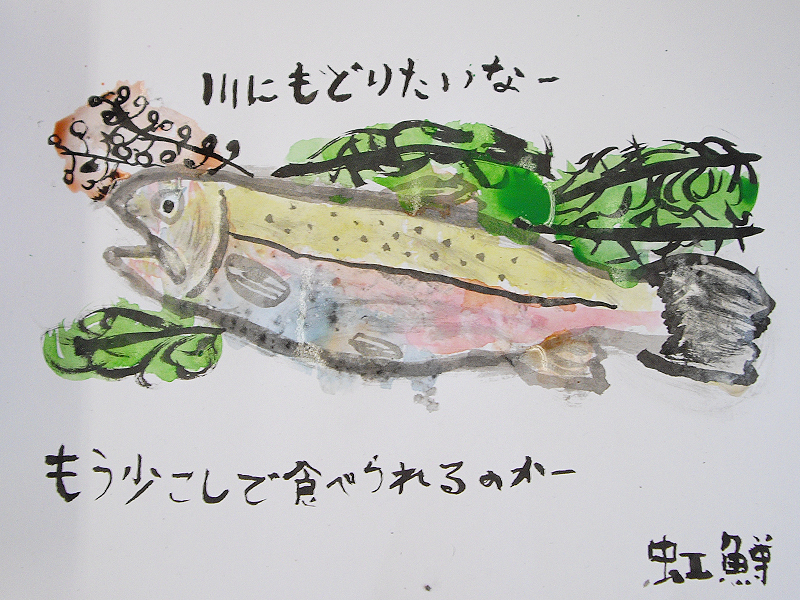 川にもどりたいなー
もう少こしで食べられるのかー
虹鱒